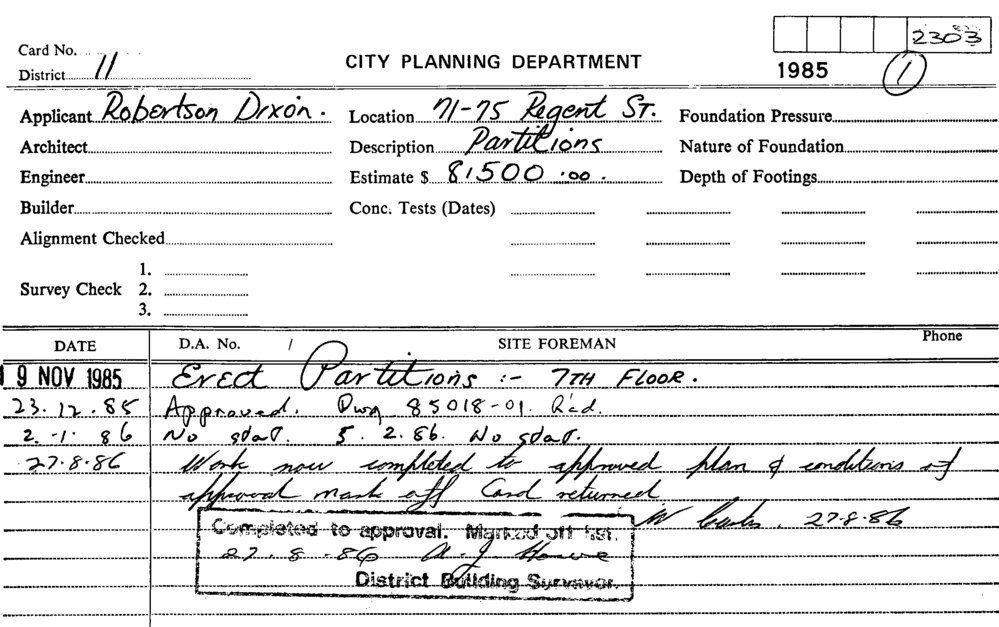 2303
Card No.
District 11
CITY PLANNING DEPARTMENT
1985 1
Applicant Robertson Dixon. Location 71-75 Regent St. Foundation Pressure
Architect Description Partitions Nature of Foundation
Engineer Estimate $ 81500.00. Depth of Footings
Builder Conc. Tests (Dates)
Alignment Checked
1.
Survey Check 2.
3.
DATE D.A. No. / SITE FOREMAN Phone
19 NOV 1985 Erect Partitions :- 7TH FLOOR.
23.12.85 Approved. Dwg 85018-01. Rcd.
2.-1.86 No start. 5.2.86. No start.
27.8.86 Work now completed to approved plan & conditions of
approval mark off Card returned
27.8.86
Completed to approval. Marked off list.
27.8.86
District Building Surveyor.